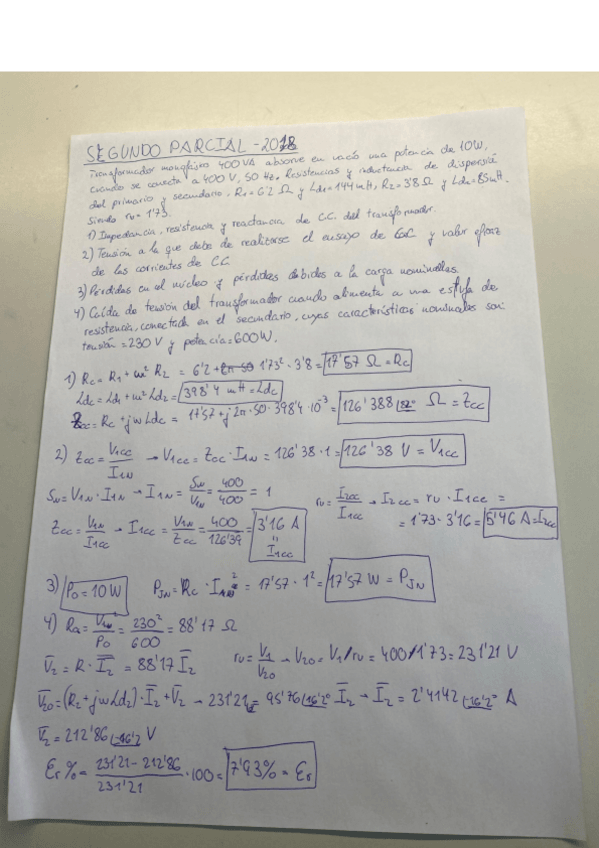 SEGUNDO PARCIAL - 2018
Transformador monofásico 400 VA absorve en vacío una potencia de 10W,
cuando se conecta a 400 V, 50 Hz. Resistencias y inductancia de dispersión
del primario y secundario, R1 = 6'2 Ω y Ld1 = 144 mH, R2 = 3'8 Ω y Ld2 = 85 mH.
Siendo rv = 1'73.
1) Impedancia, resistencia y reactancia de C.C. del transformador.
2) Tensión a la que debe de realizarse el ensayo de C.C y valor eficaz
de las corrientes de C.C
3) Pérdidas en el núcleo y pérdidas debidas a la carga nominales.
4) Caída de tensión del transformador cuando alimenta a una estufa de
resistencia, conectada en el secundario, cuyas características nominales son:
tensión = 230 V y potencia = 600 W.
1) Rc = R1 + m² R2 = 6'2 + 1'73² · 3'8 = 17'57 Ω = Rc
Ldc = Ld1 + m² Ld2 = 398'4 mH = Ldc
Zcc = Rc + jw Ldc = 17'57 + j 2π · 50 · 398'4 · 10⁻³ = 126'388 |82° Ω = Zcc
2) Zcc = V1cc / I1N → V1cc = Zcc · I1N = 126'38 · 1 = 126'38 V = V1cc
SN = V1N · I1N → I1N = SN / V1N = 400 / 400 = 1
rv = I2cc / I1cc → I2cc = rv · I1cc =
= 1'73 · 3'16 = 5'46 A = I2cc
Zcc = V1N / I1cc → I1cc = V1N / Zcc = 400 / 126'39 = 3'16 A = I1cc
3) P0 = 10 W PJN = Rc · I1N² = 17'57 · 1² = 17'57 W = PJN
4) Ra = V1N² / P0 = 230² / 600 = 88'17 Ω
V̄2 = R · Ī2 = 88'17 Ī2 rv = V1 / V20 → V20 = V1/rv = 400/1'73 = 231'21 V
V̄20 = (R2 + jw Ld2) · Ī2 + V̄2 → 231'21 = 95'76 |16'2° Ī2 → Ī2 = 2'4142 |-16'2° A
V̄2 = 212'86 |-16'2° V
Er% = (231'21 - 212'86) / 231'21 · 100 = 7'93% = Er